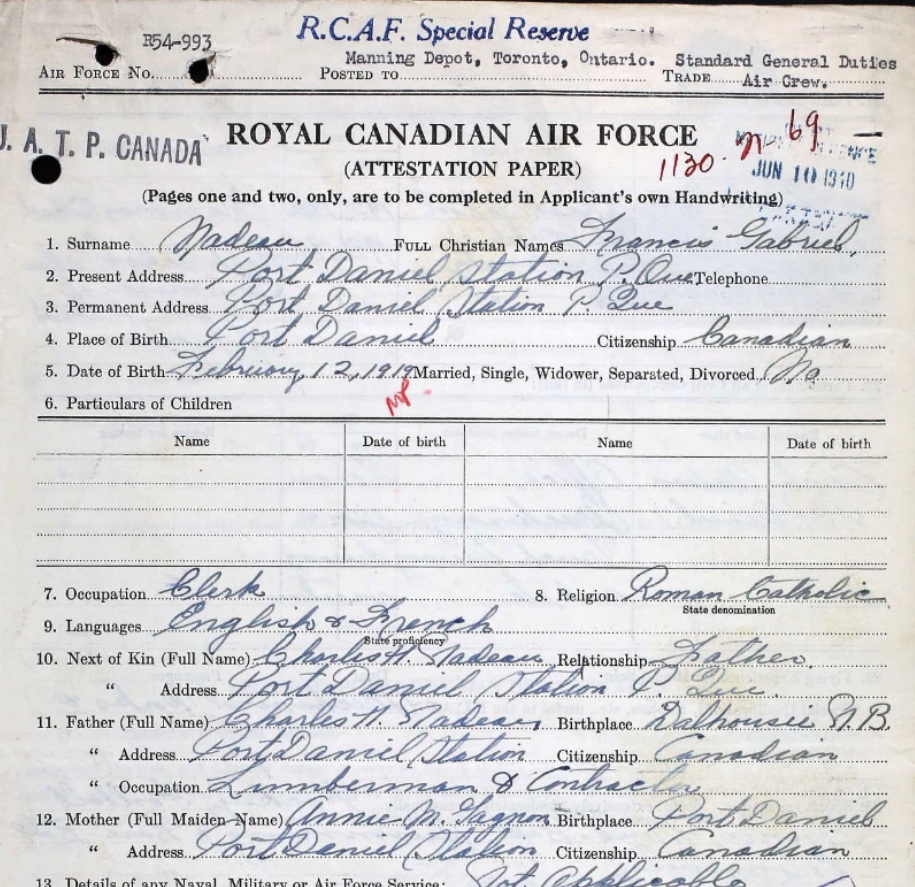 R.C.A.F. Special Reserve
R54-993
Manning Depot, Toronto, Ontario. Standard General Duties
AIR FORCE No. POSTED TO TRADE Air Crew.
J. A. T. P. CANADA
ROYAL CANADIAN AIR FORCE
69
(ATTESTATION PAPER)
1130
JUN 10 1940
(Pages one and two, only, are to be completed in Applicant's own Handwriting)
1. Surname Nadeau FULL Christian Names Francis Gabriel,
2. Present Address Port Daniel Station P. Que Telephone
3. Permanent Address Port Daniel Station P. Que
4. Place of Birth Port Daniel Citizenship Canadian
5. Date of Birth February, 12, 1919 Married, Single, Widower, Separated, Divorced No
6. Particulars of Children
Name Date of birth Name Date of birth
7. Occupation Clerk 8. Religion Roman Catholic
State denomination
9. Languages English & French
State proficiency
10. Next of Kin (Full Name) Charles Nadeau Relationship Father
" Address Port Daniel Station P. Que.
11. Father (Full Name) Charles Nadeau Birthplace Dalhousie N.B.
" Address Port Daniel Station Citizenship Canadian
" Occupation Lumberman & Contractor
12. Mother (Full Maiden Name) Annie M. Gagnon Birthplace Port Daniel
" Address Port Daniel Station Citizenship Canadian
13. Details of any Naval, Military or Air Force Service: Not Applicable